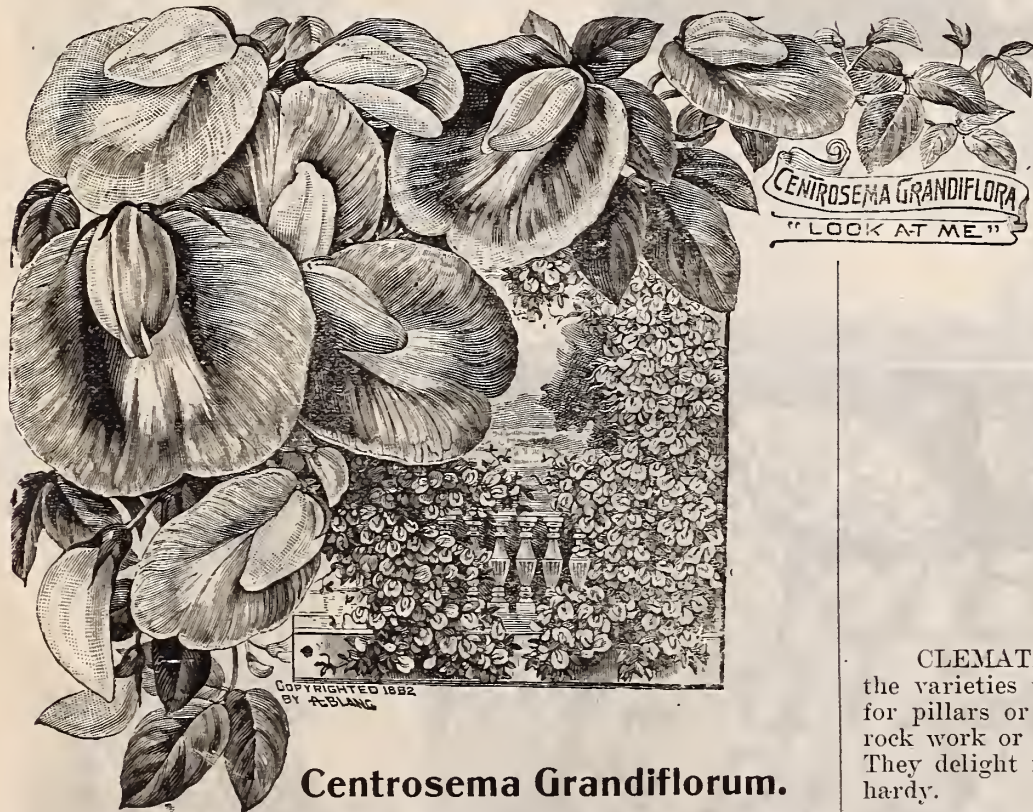 CENTROSEMA GRANDIFLORA
"LOOK AT ME"
COPYRIGHTED 1882
BY A. BLANC
Centrosema Grandiflorum.
CLEMAT
the varieties
for pillars or
rock work or
They delight
hardy.